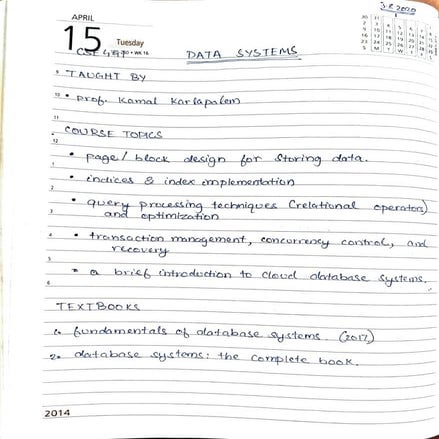 3.8.2020
APRIL
15 Tuesday
WK 16
CSE
DATA SYSTEMS
TAUGHT BY
• Prof. Kamal Karlapalem
COURSE TOPICS
• page/block design for storing data.
• indices & index implementation
• query processing techniques (relational operators)
and optimization
• transaction management, concurrency control, and
recovery
• a brief introduction to cloud database systems.
TEXTBOOKS
1. fundamentals of database systems. (2017)
2. database systems: the complete book.
2014